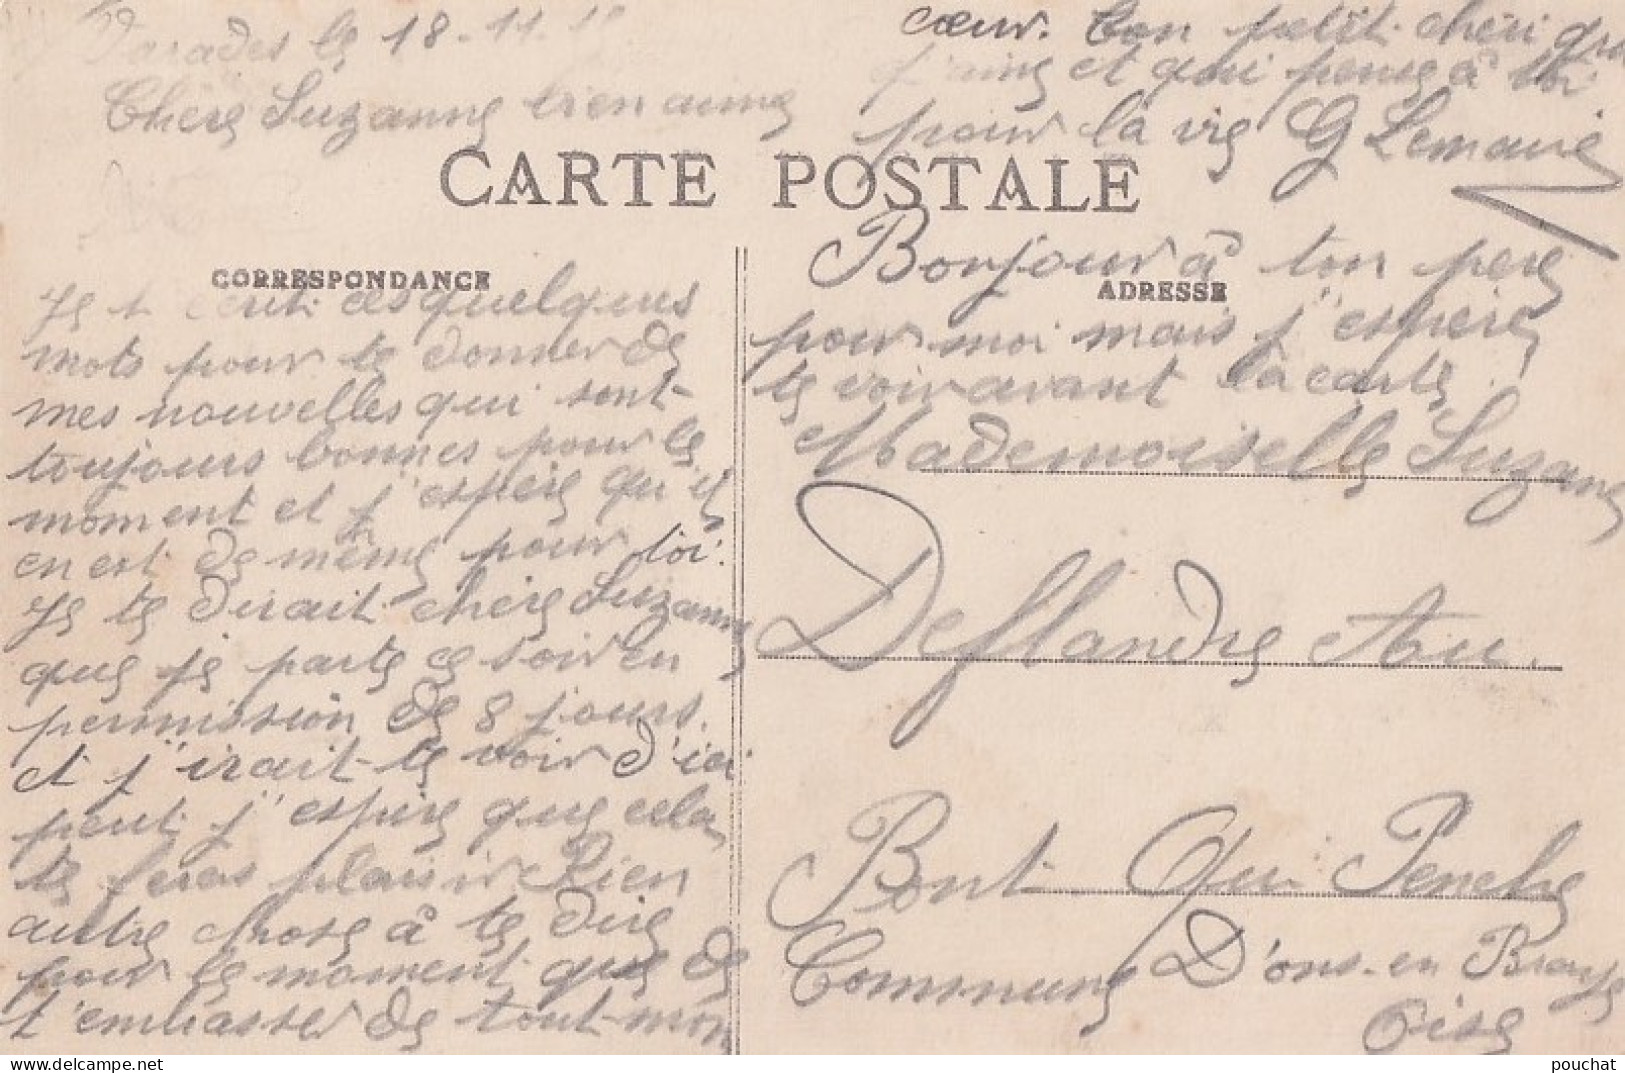 Varades le 18-11-1
Chère Suzanne bien aimé
CARTE POSTALE
CORRESPONDANCE
Je t écrit ces quelques
mots pour te donner de
mes nouvelles qui sont
toujours bonnes pour le
moment et j'espère qu'il
en est de même pour toi.
Je te dirait chère Suzanne
que je parte ce soir en
permission de 8 jours.
et j'irait te voir d'ici
peut j'espère que cela
te feras plaisir Rien
autre chose à te dire
pour le moment que de
t'embrasser de tout mon
cœur. Ton petit chéri qui
t'aime et qui pense à toi
pour la vie G Lemaire
Bonjour à ton père
ADRESSE
pour moi mais j'espère
te voir avant la carte
Mademoiselle Suzanne
Deflandre Au
Pont Qui Penche
Commune D'ons-en Bray
Oise
pouchat